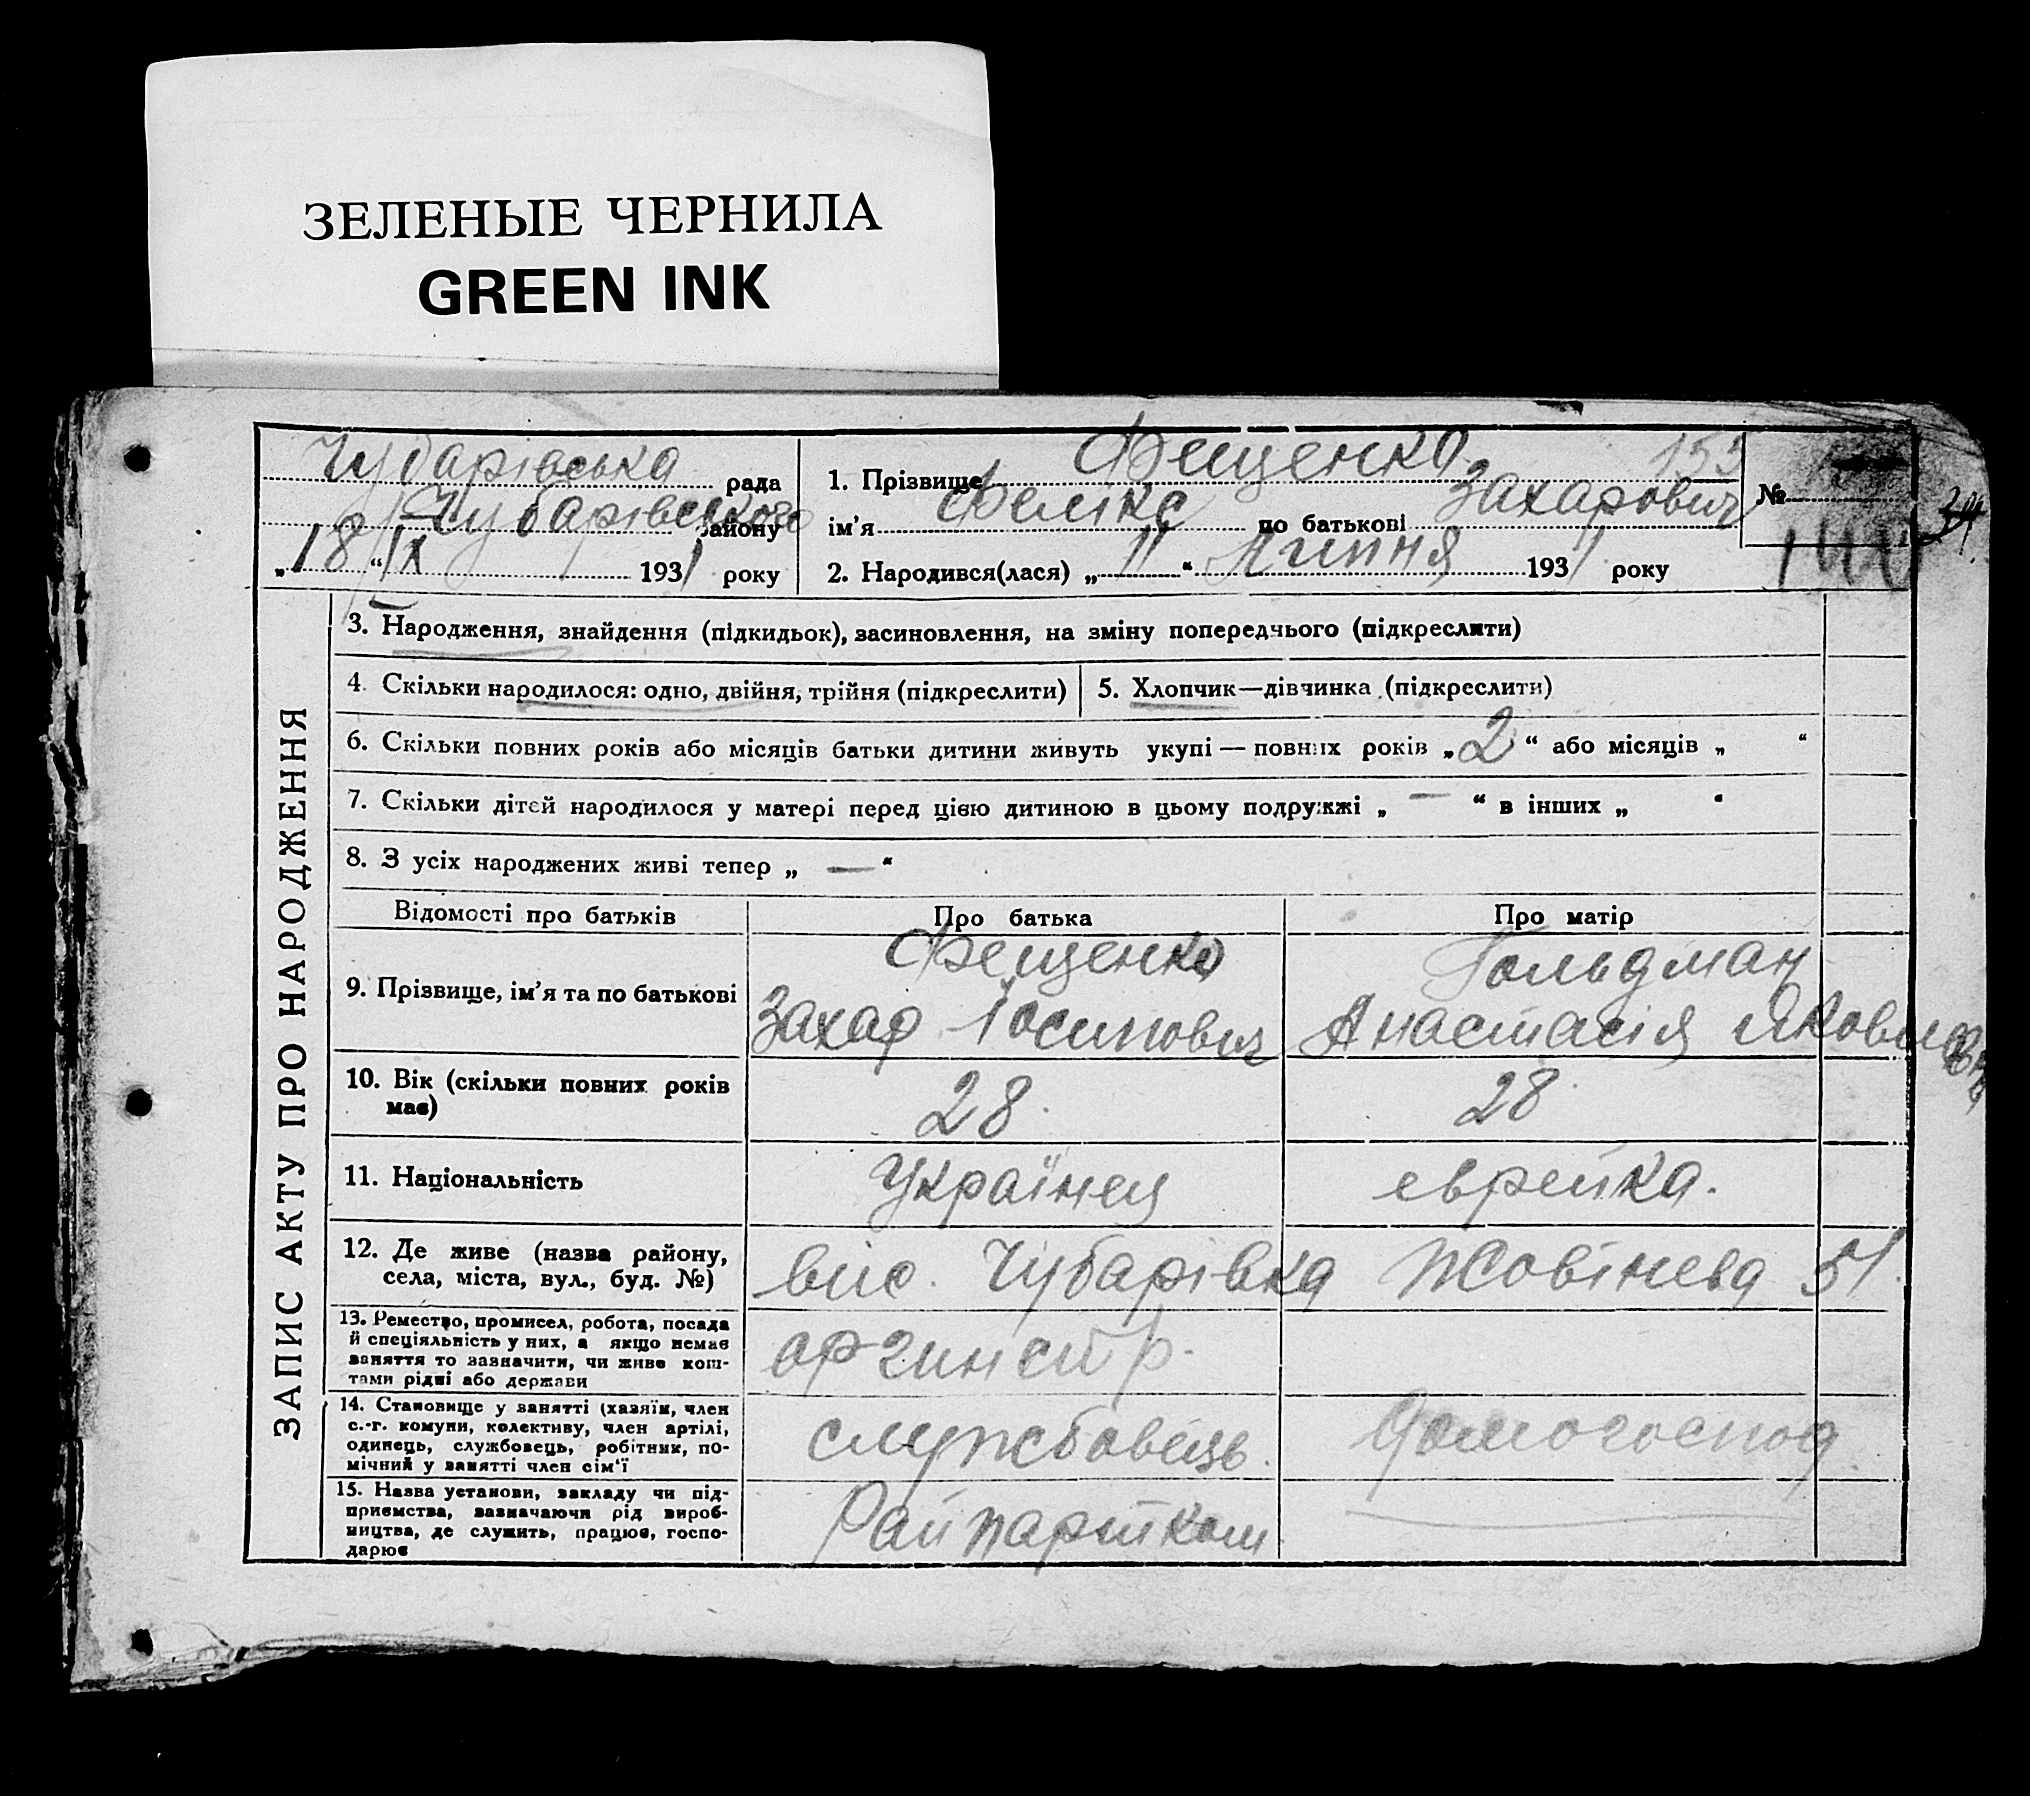 ЗЕЛЕНЫЕ ЧЕРНИЛА
GREEN INK
Чубарівська рада
Чубарівського району
„18“ IX 1931 року
1. Прізвище Фещенко 155
ім’я Фелікс по батькові Захарович
2. Народився(лася) „11“ Липня 1931 року
№
ЗАПИС АКТУ ПРО НАРОДЖЕННЯ
3. Народження, знайдення (підкидьок), засиновлення, на зміну попереднього (підкреслити)
4. Скільки народилося: одно, двійня, трійня (підкреслити)
5. Хлопчик—дівчинка (підкреслити)
6. Скільки повних років або місяців батьки дитини живуть укупі — повних років „2“ або місяців „ “
7. Скільки дітей народилося у матері перед цією дитиною в цьому подружжі „ — “ в інших „ “
8. З усіх народжених живі тепер „ — “
Відомості про батьків
Про батька
Про матір
9. Прізвище, ім’я та по батькові
Фещенко
Захар Іосипович
Гольдман
Анастасія Яковливна
10. Вік (скільки повних років
має)
28
28
11. Національність
Українец
еврейка.
12. Де живе (назва району,
села, міста, вул., буд. №)
вис. Чубарівка Жовтнева 51
13. Ремество, промисел, робота, посада
й спеціяльність у них, а якщо немає
заняття то зазначити, чи живе кош-
тами рідні або держави
оргинстр.
14. Становище у занятті (хазяїн, член
с.-г. комуни, колективу, член артілі,
одинець, службовець, робітник, по-
мічний у занятті член сім’ї
службовець.
домогоспод.
15. Назва установи, закладу чи під-
приємства, зазначаючи рід вироб-
ництва, де служить, працює, госпо-
дарює
Райпартком